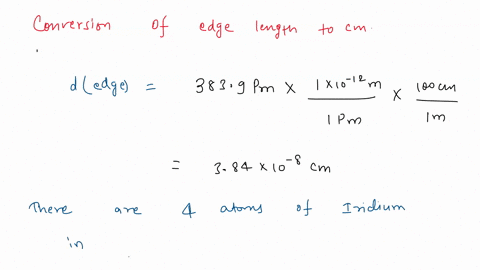 Conversion of edge length to cm.
d(edge) = 383.9 Pm × 1×10⁻¹²m / 1 Pm × 100cm / 1m
= 3.84 × 10⁻⁸ cm
There are 4 atoms of Iridium
in